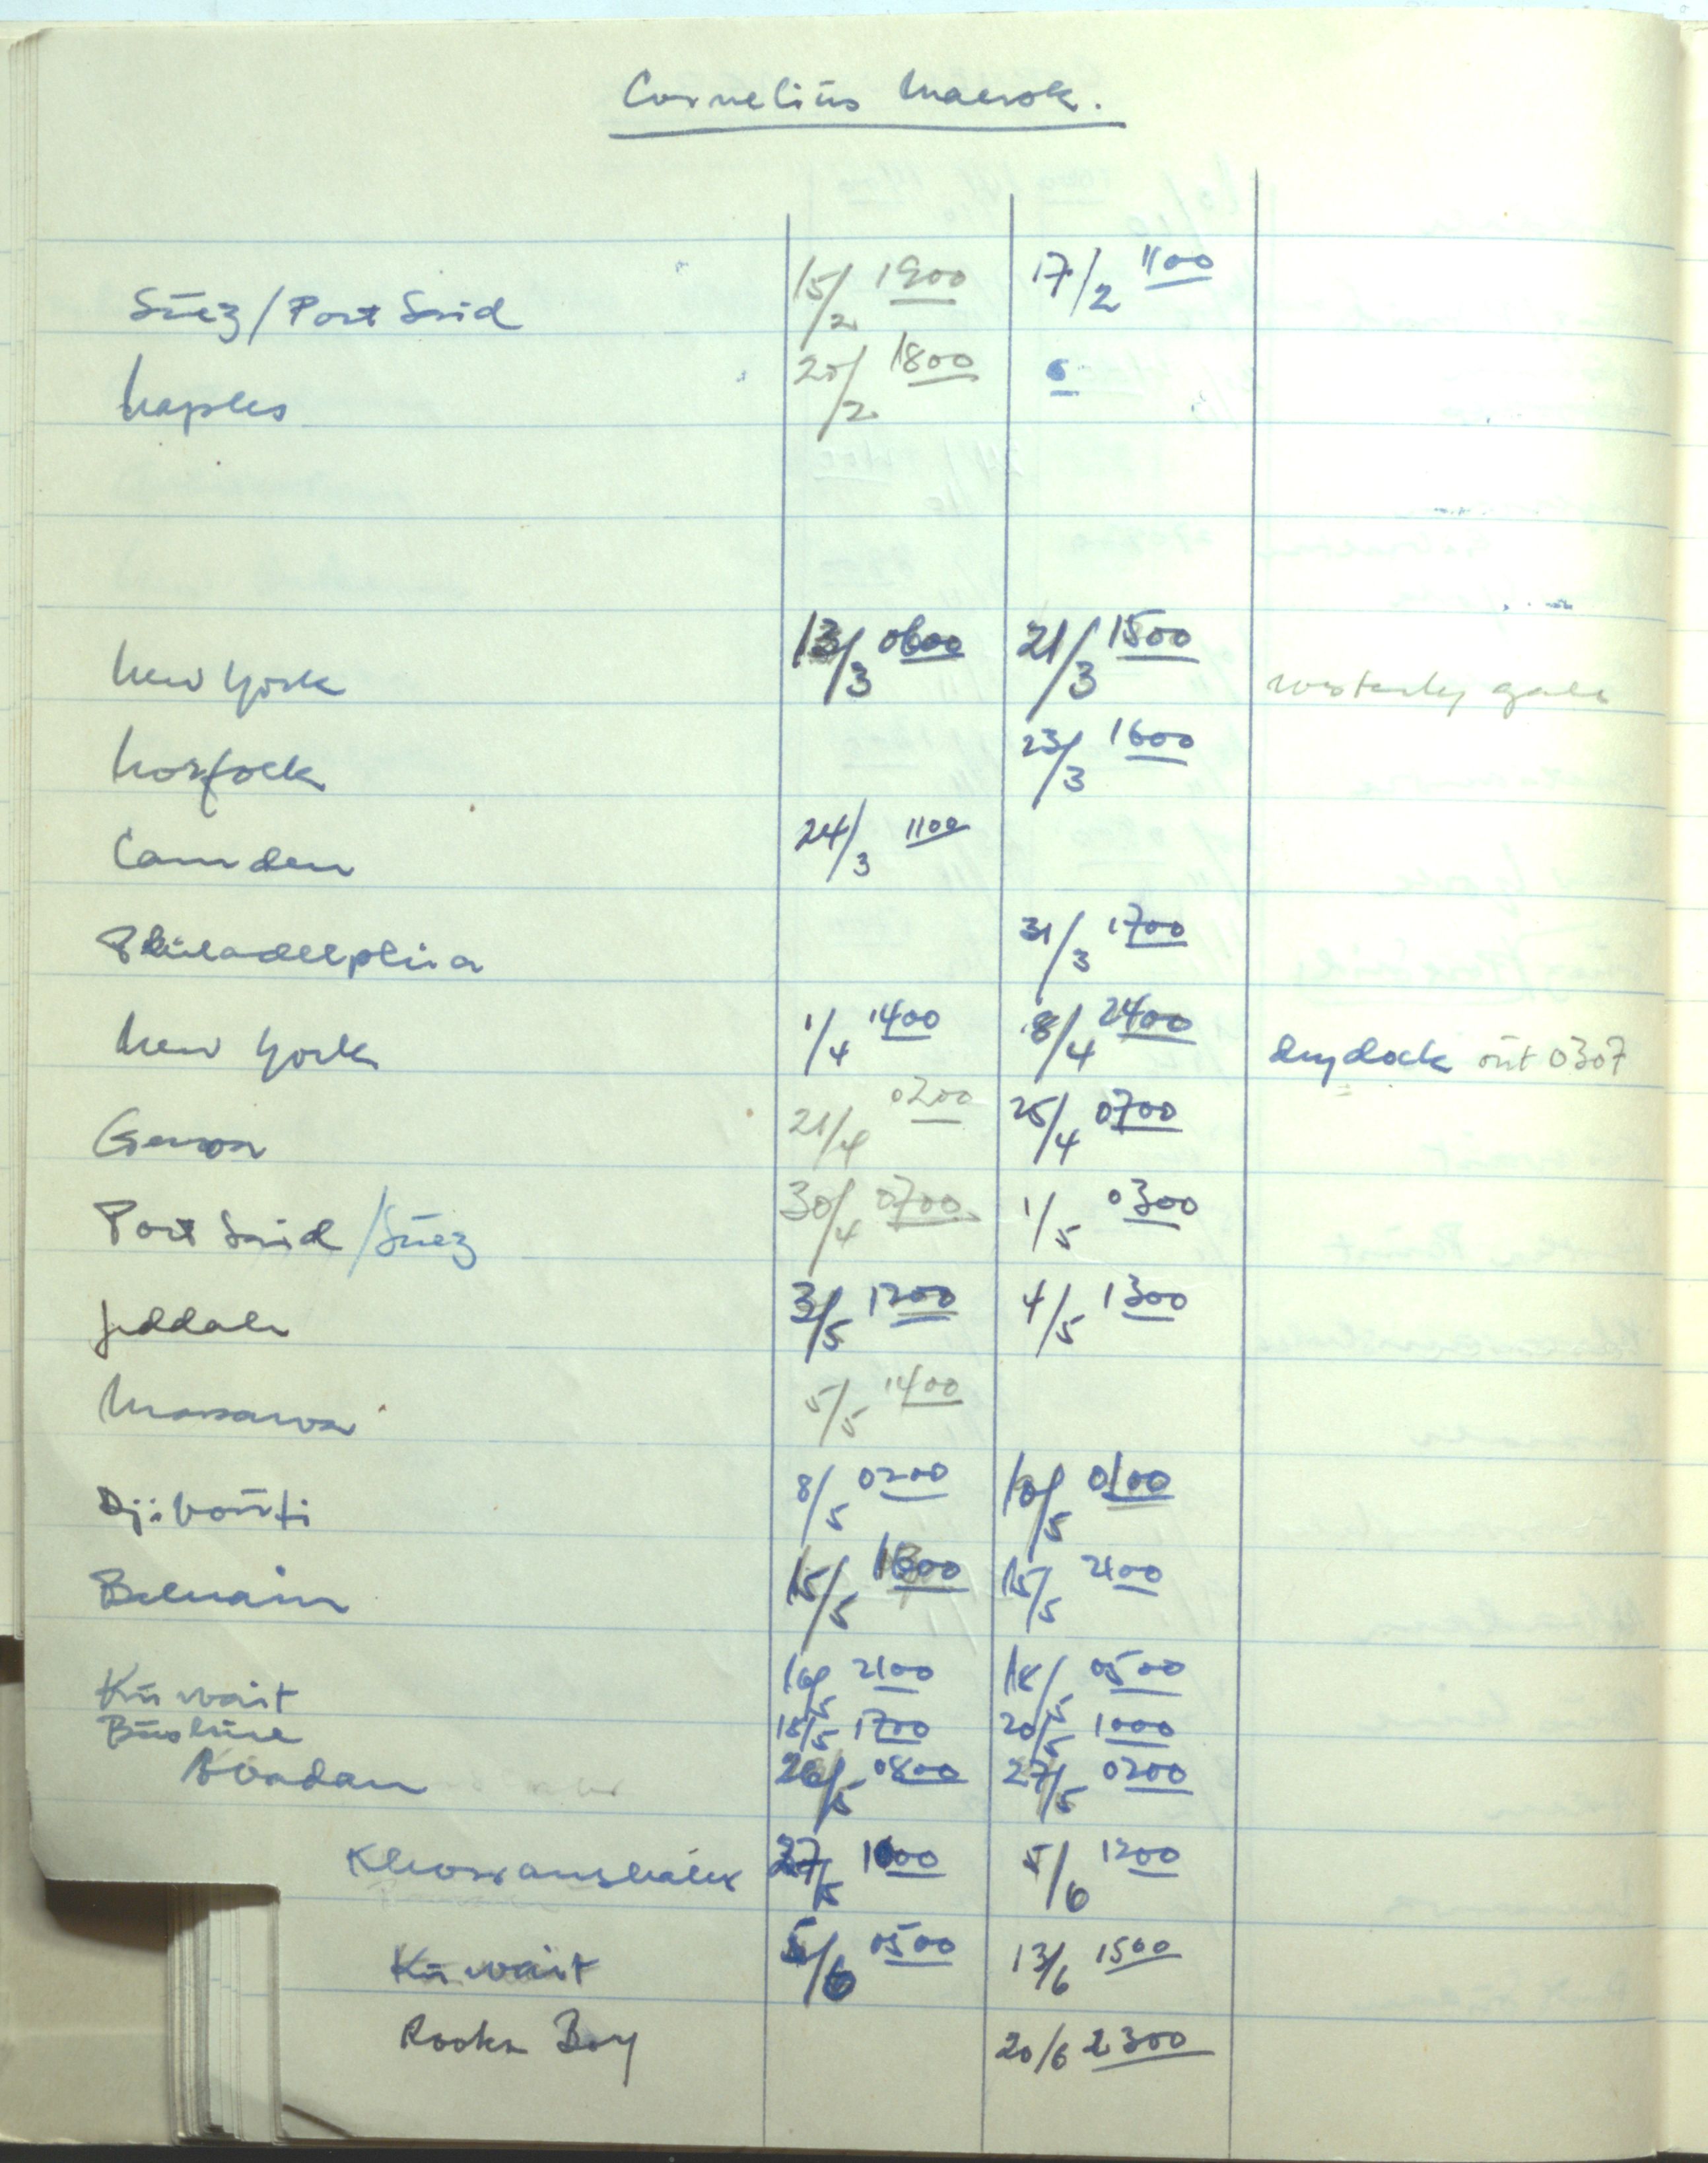 Cornelius Maersk.
Süez/Port Said 15/2 1900 17/2 1100
Naples 20/2 1800
New York 13/3 0600 21/3 1500 westerly gales
Norfolk 23/3 1600
Camden 24/3 1100
Philadelphia 31/3 1700
New York 1/4 1400 8/4 2400 drydock oüt 0307
Genoa 21/4 0200 25/4 0700
Port Said /Süez 30/4 0700 1/5 0300
Jeddah 3/5 1200 4/5 1300
Massawa 5/5 1400
Djiboüti 8/5 0200 10/5 0100
Bahrain 15/5 1600 15/5 2400
Küwait 16/5 2100 18/5 0500
Büshire 18/5 1700 20/5 1000
Abadan 26/5 0800 27/5 0200
Khorramshahr 27/5 1000 5/6 1200
Küwait 5/6 0500 13/6 1500
Rooka Bay 20/6 2300